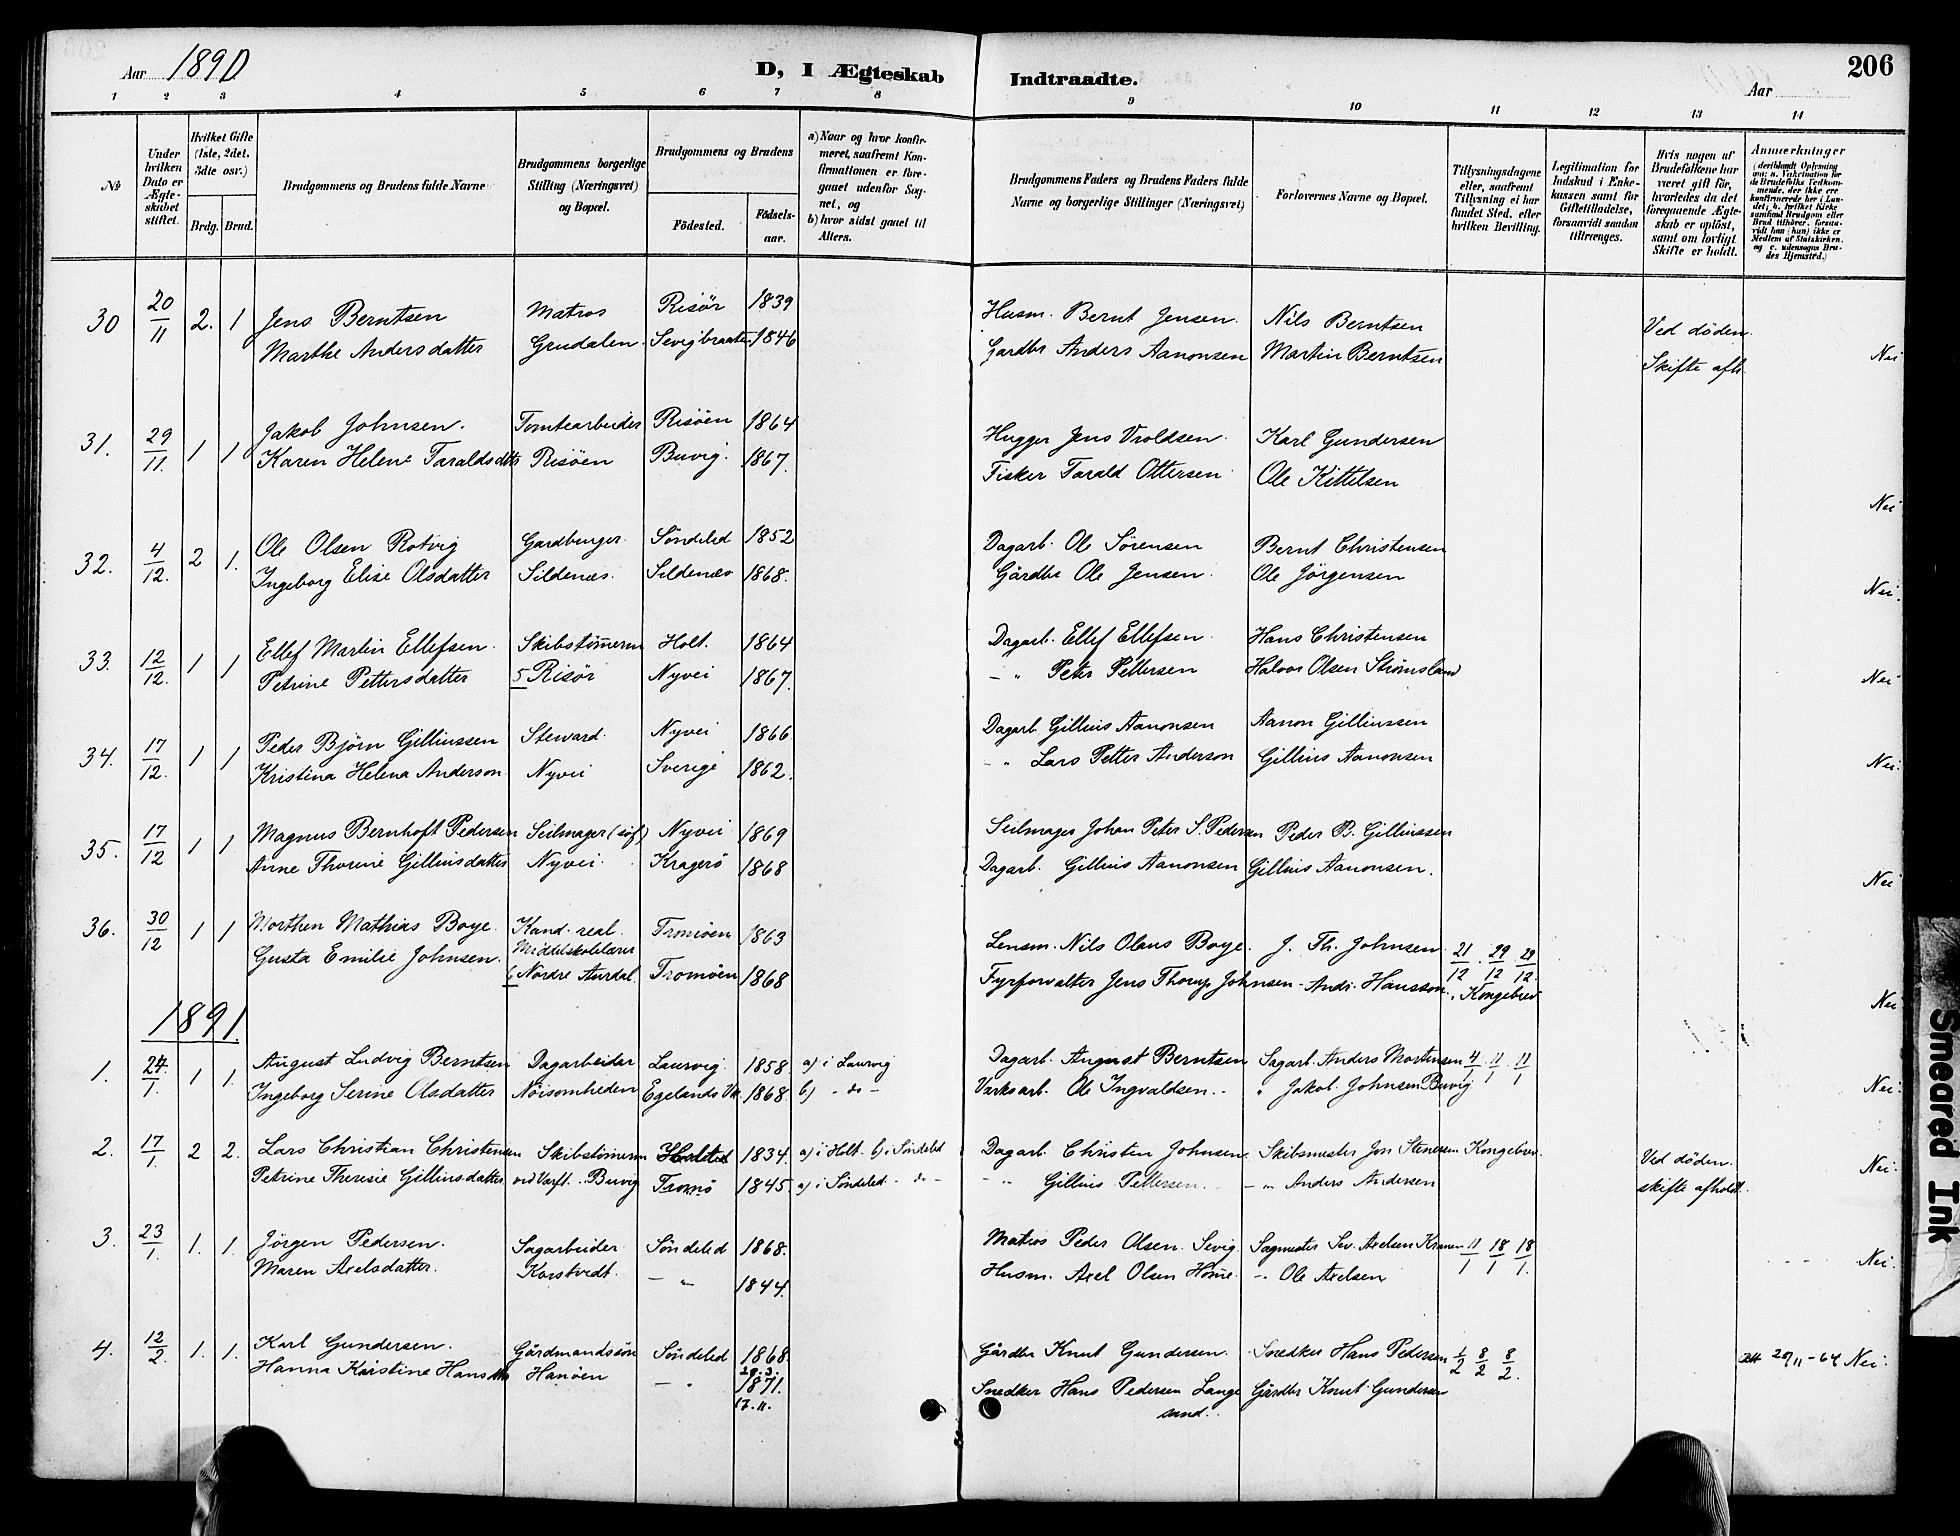 Aar 1890
D, I Ægteskab Indtraadte.
Aar
206
1 2 3 4 5 6 7 8 9 10 11 12 13 14
No
Under hvilken Dato er Ægteskabet stiftet.
Hvilket Gifte (1ste, 2det, 3die osv.)
Brdg. Brud.
Brudgommens og Brudens fulde Navne
Brudgommens borgerlige Stilling (Næringsvei) og Bopæl.
Brudgommens og Brudens
Fødested. Fødselsaar.
a) Naar og hvor konfirmeret, saafremt Konfirmationen er foregaaet udenfor Sognet, og
b) hvor sidst gaaet til Alters.
Brudgommens Faders og Brudens Faders fulde Navne og borgerlige Stillinger (Næringsvei)
Forlovernes Navne og Bopæl.
Tillysningsdagene eller, saafremt Tillysning ei har fundet Sted, efter hvilken Bevilling.
Legitimation for Indskud i Enkekassen samt for Giftetilladelse, forsaavidt saadan tiltrænges.
Hvis nogen af Brudefolkene har været gift før, hvorledes da det foregaaende Ægteskab er opløst, samt om lovligt Skifte er holdt.
Anmærkninger
30 20/11 2. 1 Jens Berntsen Matros Risør 1839 Husm. Bernt Jensen. Nils Berntsen Ved døden.
Marthe Andersdatter Grudalen Sevigbraaten 1846 Gardbr Anders Aanonsen Martin Berntsen Skifte afh. Nei
31. 29/11. 1 1 Jakob Johnsen. Tomtearbeider Risöen 1864 Hugger Jens Vroldsen. Karl Gundersen
Karen Helene Taraldsdtr Risöen Buvig. 1867. Fisker Tarald Ottersen Ole Kittelsen Nei
32. 4/12. 2 1. Ole Olsen Rotvig Gardbruger. Söndeled 1852 Dagarb. Ole Sørensen Bernt Christensen
Ingeborg Elise Olsdatter Sildenæs. Sildenæs 1868. Gårdbr Ole Jensen. Ole Jörgensen Nei.
33. 12/12. 1 1 Ellef Martin Ellefsen. Skibstømerm Holt. 1864 Dagarb. Ellef Ellefsen. Hans Christensen
Petrine Pettersdatter 5 Risör Nyvei 1867. - " Peter Pettersen Halvor Olsen Strømsland Nei
34. 17/12. 1 1 Peder Björn Gilliussen Steward. Nyvei 1866 Dagarb Gillius Aanonsen Aanon Gilliussen
Kristina Helena Anderson Nyvei Sverige 1862. - " Lars Petter Anderson Gillius Aanonsen Nei.
35. 17/12 1 1 Magnus Bernhoft Pedersen Seilmager (søf) Nyvei 1869 Seilmager Johan Peter S. Pedersen Peder B. Gilliussen
Anne Thorine Gilliusdatter Nyvei. Kragerö 1868 Dagarb. Gillius Aanonsen Gillius Aanonsen. Nei
36. 30/12 1 1 Morthen Mathias Boye. Kand. real. Middelskolelærer Tromöen 1863 Lensm. Nils Olaus Boye. J. Th. Johnsen 21/12. 29/12 29/12.
Gusta Emilie Johnsen. 6 Nordre Aurdal. Tromöen 1868 Fyrforvalter Jens Thorup Johnsen - Andr. Hansson. Kongebrev Nei
1891.
1. 24/1. 1 1. August Ludvig Berntsen Dagarbeider Laurvig 1858 a) i Laurvig Dagarb. August Berntsen Sagarb. Anders Mortensen 4/1 11/1. 11/1
Ingeborg Serine Olsdatter Nöisomheden Egelands Vk. 1868 b) - do - Værksarb. Ole Ingvaldsen. " Jakob Johnsen Buvig Nei.
2. 17/1. 2 2. Lars Christian Christensen Skibstømerm 1834. a) i Holt. b) i Söndeled Dagarb. Christen Johnsen Skibsmester Jon Stenersen Kongebrev. Ved døden.
Petrine Theresie Gilliusdatter ved Værft. Buvig Tromö 1845. a) i Söndeled - do - - " Gillius Pettersen. - " Anders Andersen skifte afholdt. Nei
3. 23/1. 1. 1. Jörgen Pedersen. Sagarbeider Söndeled 1868. Matros Peder Olsen. Sevig Sagmester Sev. Axelsen 11/1 18/1 18/1.
Maren Axelsdatter. Korstvedt. - " 1844. Husm. Axel Olsen Home. -. Ole Axelsen Nei.
4. 12/2. 1. 1. Karl Gundersen. Gårdmandssön Söndeled 1868. 29.3. Gårdbr Knut Gundersen. Snedker Hans Pedersen 1/2 8/2 8/2.
Hanna Kristine Hansdtr Hanöen - " 1871. 17.11. Snedker Hans Pedersen Langesand. Gårdbr Knut Gundersen 29/11-64 Nei.
Smeared Ink